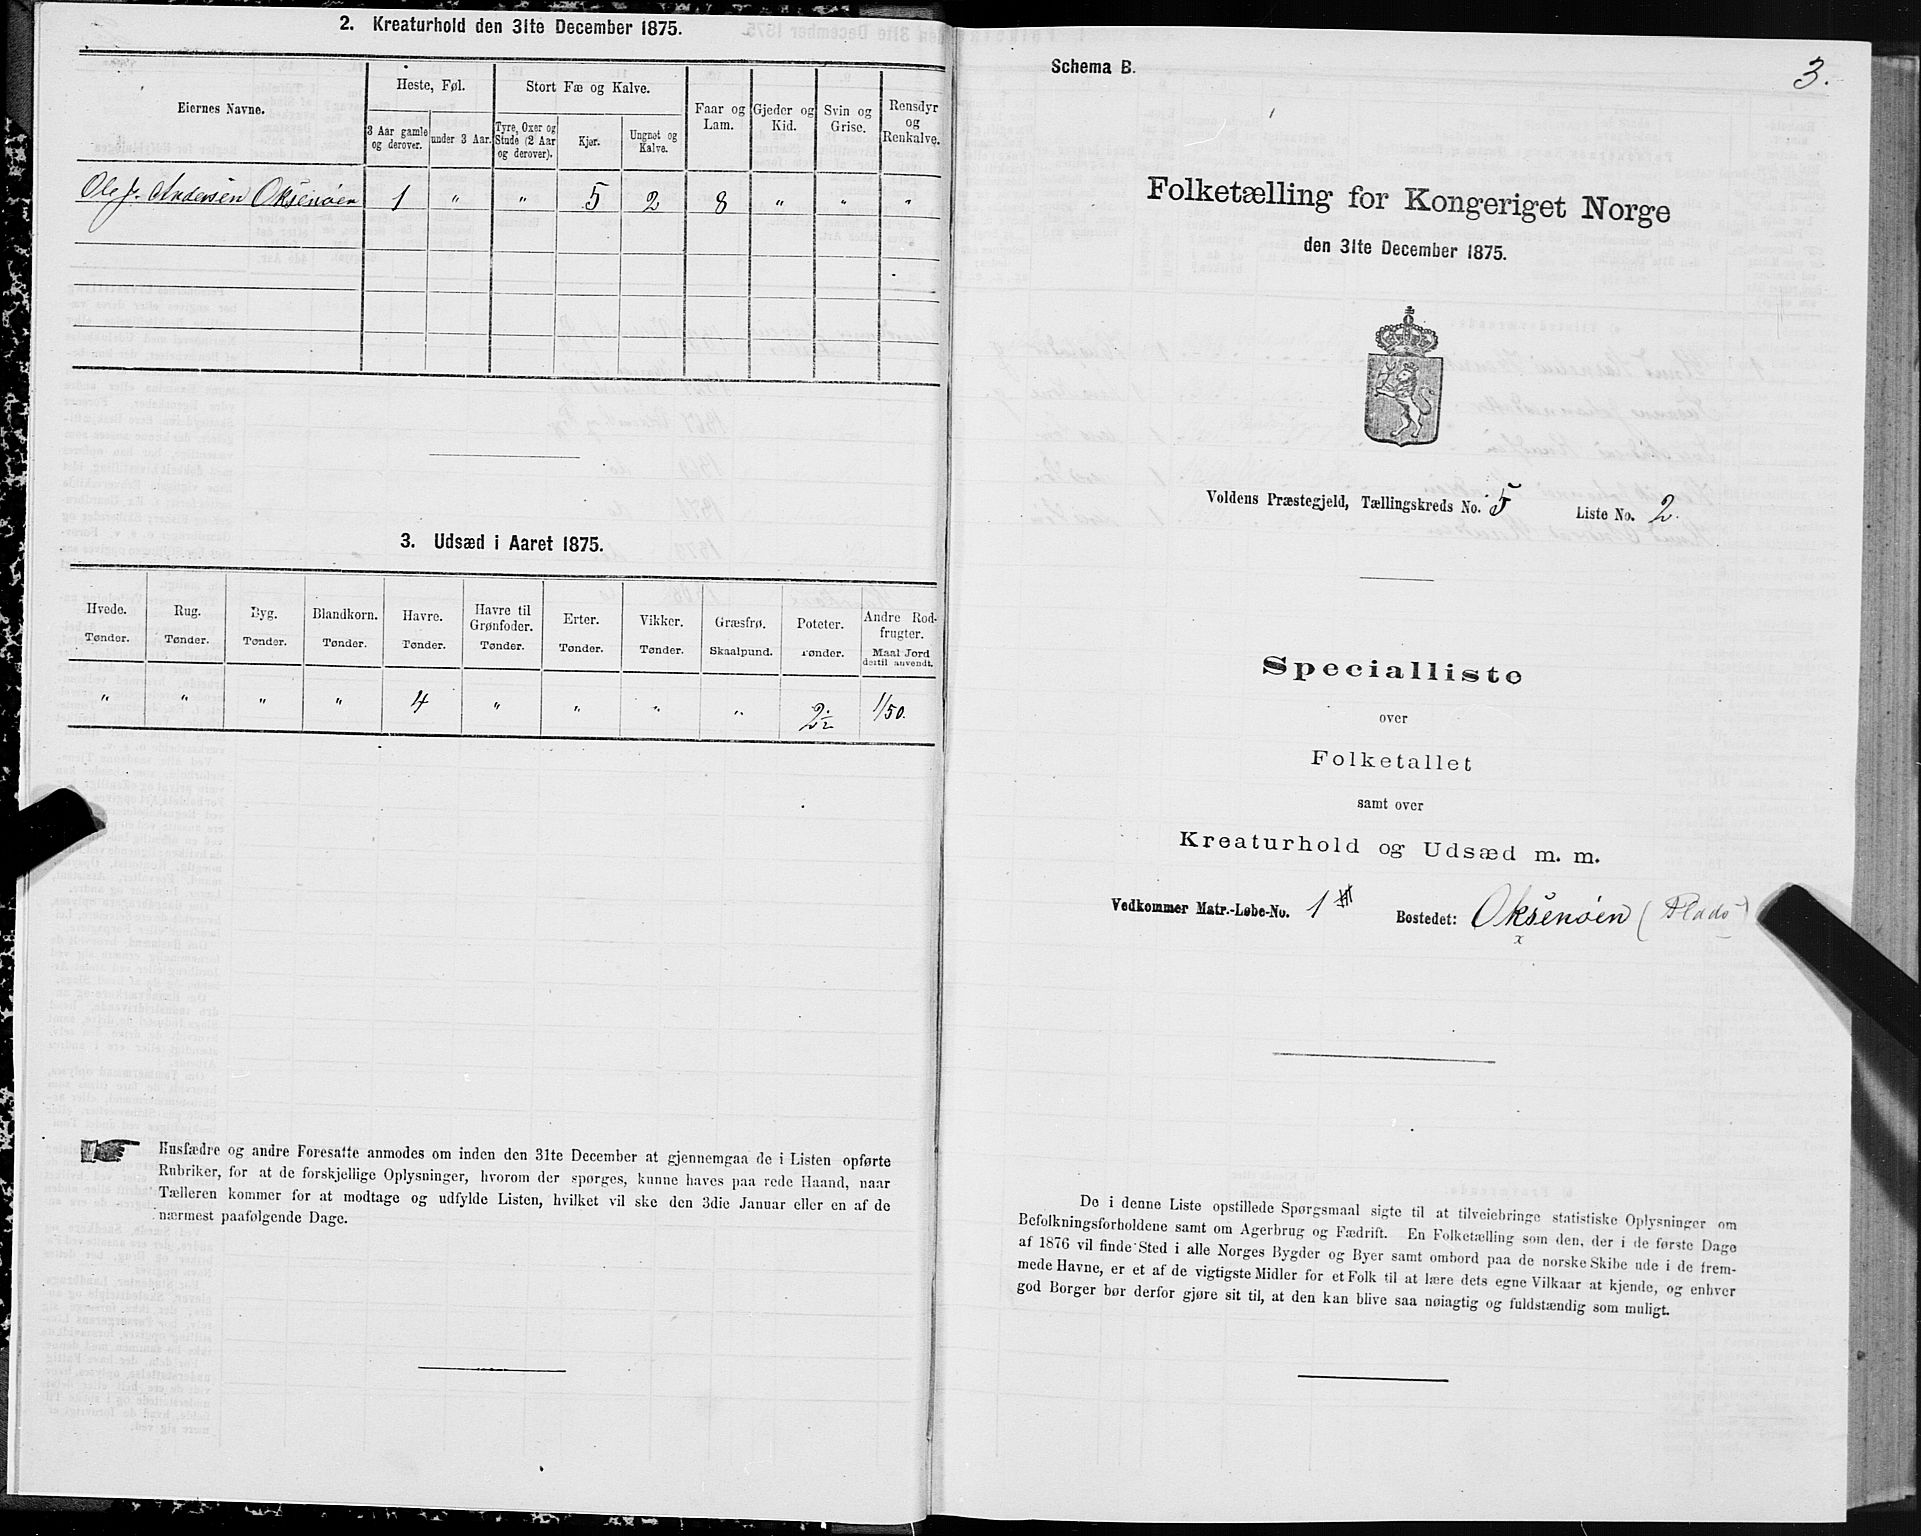 2. Kreaturhold den 31te December 1875.
Eiernes Navne.
Heste, Føl.
3 Aar gamle og derover.
under 3 Aar.
Stort Fæ og Kalve.
Tyre, Oxer og Stude (2 Aar og derover).
Kjør.
Ungnøt og Kalve.
Faar og Lam.
Gjeder og Kid.
Svin og Grise.
Rensdyr og Renkalve.
Ole J. Andersen Oksenøen 1 " " 5 2 8 " " "
3. Udsæd i Aaret 1875.
Hvede. Rug. Byg. Blandkorn. Havre. Havre til Grønfoder. Erter. Vikker. Græsfrø. Poteter. Andre Rodfrugter.
Tønder. Tønder. Tønder. Tønder. Tønder. Tønder. Tønder. Tønder. Skaalpund. Tønder. Maal Jord dertil anvendt.
" " " " 4 " " " " 2 1/2 1/50.
Husfædre og andre Foresatte anmodes om inden den 31te December at gjennemgaa de i Listen opførte
Rubriker, for at de forskjellige Oplysninger, hvorom der spørges, kunne haves paa rede Haand, naar
Tælleren kommer for at modtage og udfylde Listen, hvilket vil ske den 3die Januar eller en af de
nærmest paafølgende Dage.
Schema B.
3.
Folketælling for Kongeriget Norge
den 31te December 1875.
Voldens Præstegjeld, Tællingskreds No. 5 Liste No. 2.
Specialliste
over
Folketallet
samt over
Kreaturhold og Udsæd m. m.
Vedkommer Matr.-Løbe-No. 1 Bostedet: Oksenøen (Plads)
x
De i denne Liste opstillede Spørgsmaal sigte til at tilveiebringe statistiske Oplysninger om
Befolkningsforholdene samt om Agerbrug og Fædrift. En Folketælling som den, der i de første Dage
af 1876 vil finde Sted i alle Norges Bygder og Byer samt ombord paa de norske Skibe ude i de frem-
mede Havne, er et af de vigtigste Midler for et Folk til at lære dets egne Vilkaar at kjende, og enhver
god Borger bør derfor gjøre sit til, at den kan blive saa nøiagtig og fuldstændig som muligt.